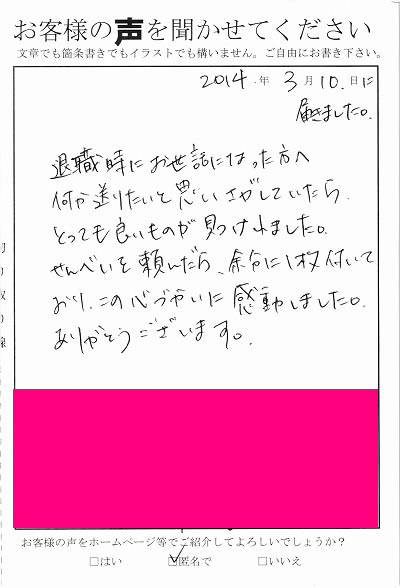 お客様の声を聞かせてください
文章でも箇条書きでもイラストでも構いません。ご自由にお書き下さい。
2014.年 3月10.日に
届きました。
退職時にお世話になった方へ
何か送りたいと思いさがしていたら、
とっても良いものが見つけれました。
せんべいを頼んだら、余分に1枚付いて
おり、この心づかいに感動しました。
ありがとうございます。
切り取り線
お客様の声をホームページ等でご紹介してよろしいでしょうか?
□はい ☑匿名で □いいえ